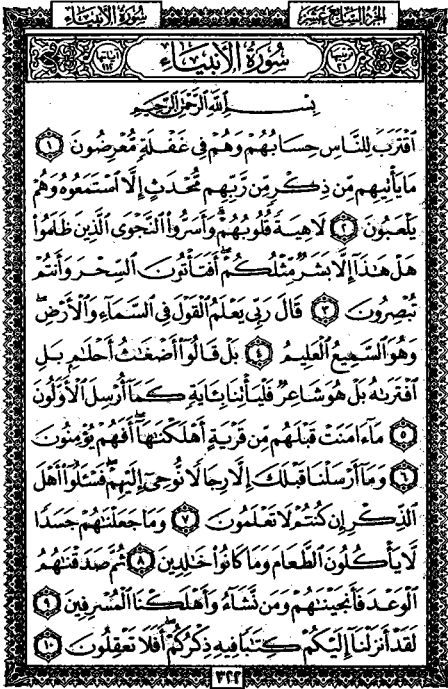 الجزء السابع عشر
سورة الأنبياء
ترتيبها ٢١
سُورَةُ الأَنبيَاءِ
آياتها ١١٢
بِسْمِ اللَّهِ الرَّحْمَٰنِ الرَّحِيمِ
ٱقْتَرَبَ لِلنَّاسِ حِسَابُهُمْ وَهُمْ فِى غَفْلَةٍ مُّعْرِضُونَ ١
مَا يَأْتِيهِم مِّن ذِكْرٍ مِّن رَّبِّهِم مُّحْدَثٍ إِلَّا ٱسْتَمَعُوهُ وَهُمْ
يَلْعَبُونَ ٢ لَاهِيَةً قُلُوبُهُمْ ۗ وَأَسَرُّوا۟ ٱلنَّجْوَى ٱلَّذِينَ ظَلَمُوا۟
هَلْ هَٰذَآ إِلَّا بَشَرٌ مِّثْلُكُمْ ۖ أَفَتَأْتُونَ ٱلسِّحْرَ وَأَنتُمْ
تُبْصِرُونَ ٣ قَالَ رَبِّى يَعْلَمُ ٱلْقَوْلَ فِى ٱلسَّمَآءِ وَٱلْأَرْضِ ۖ
وَهُوَ ٱلسَّمِيعُ ٱلْعَلِيمُ ٤ بَلْ قَالُوٓا۟ أَضْغَٰثُ أَحْلَٰمٍۭ بَلِ
ٱفْتَرَىٰهُ بَلْ هُوَ شَاعِرٌ فَلْيَأْتِنَا بِـَٔايَةٍ كَمَآ أُرْسِلَ ٱلْأَوَّلُونَ
٥ مَآ ءَامَنَتْ قَبْلَهُم مِّن قَرْيَةٍ أَهْلَكْنَٰهَآ ۖ أَفَهُمْ يُؤْمِنُونَ
٦ وَمَآ أَرْسَلْنَا قَبْلَكَ إِلَّا رِجَالًا نُّوحِىٓ إِلَيْهِمْ ۖ فَسْـَٔلُوٓا۟ أَهْلَ
ٱلذِّكْرِ إِن كُنتُمْ لَا تَعْلَمُونَ ٧ وَمَا جَعَلْنَٰهُمْ جَسَدًا
لَّا يَأْكُلُونَ ٱلطَّعَامَ وَمَا كَانُوا۟ خَٰلِدِينَ ٨ ثُمَّ صَدَقْنَٰهُمُ
ٱلْوَعْدَ فَأَنجَيْنَٰهُمْ وَمَن نَّشَآءُ وَأَهْلَكْنَا ٱلْمُسْرِفِينَ ٩
لَقَدْ أَنزَلْنَآ إِلَيْكُمْ كِتَٰبًا فِيهِ ذِكْرُكُمْ ۖ أَفَلَا تَعْقِلُونَ ١٠
٣٢٢